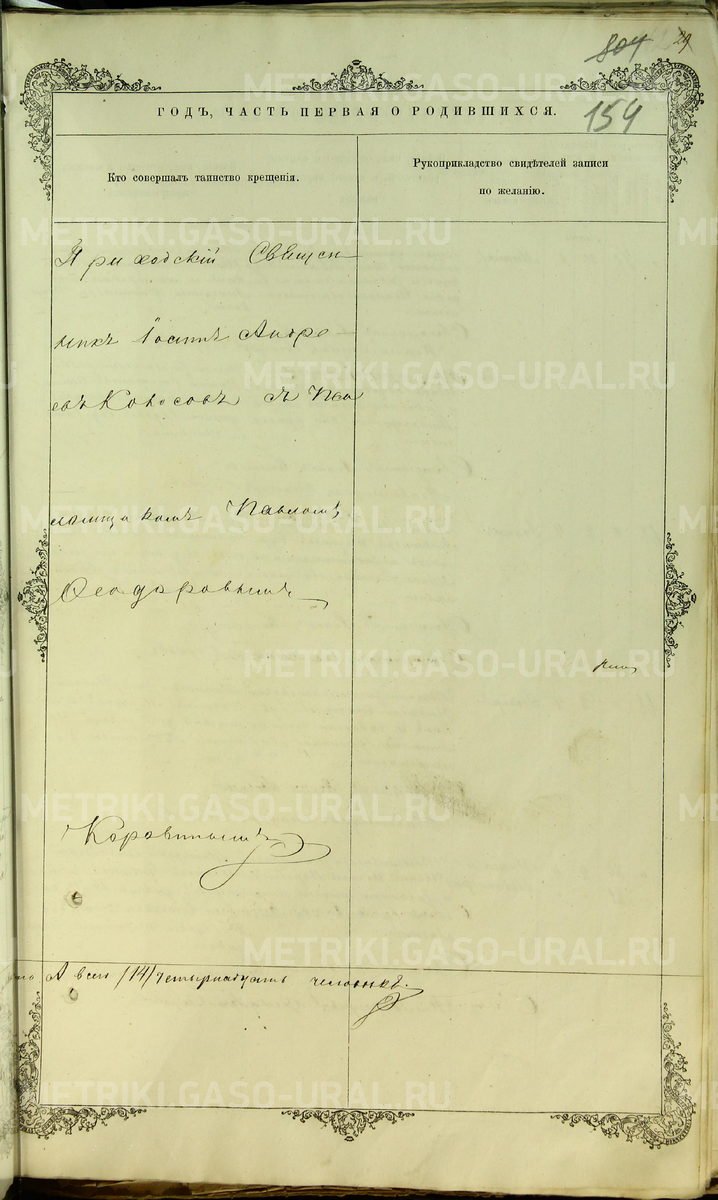 804 29
ГОДЪ, ЧАСТЬ ПЕРВАЯ О РОДИВШИХСЯ.
154
Кто совершалъ таинство крещенія.
Рукоприкладство свидѣтелей записи
по желанію.
Приходскій Священ
никъ Іосифъ Андре
евъ Колосовъ съ Пса
ломщикомъ Павломъ
Ѳеодоровымъ
Коровинымъ
А всего /14/ четырнадцать человѣкъ.
METRIKI.GASO-URAL.RU